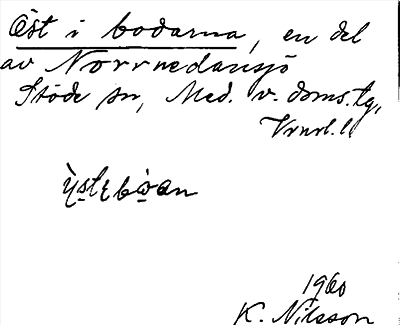 Öst i bodarna, en del
av Norrnedansjö
Stöde sn, Med. v. doms.tg,
Vrnrl. l.
Ỳstebo̤an
1960
K. Nilsson